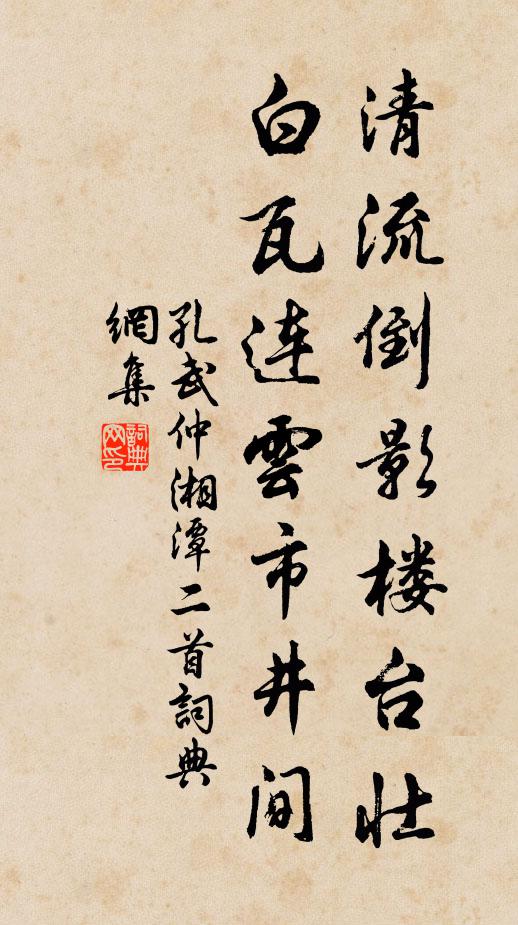 清流倒影楼台壮
白瓦連雲市井间
孔武仲湘潭二首詞典
網集
詞典网印